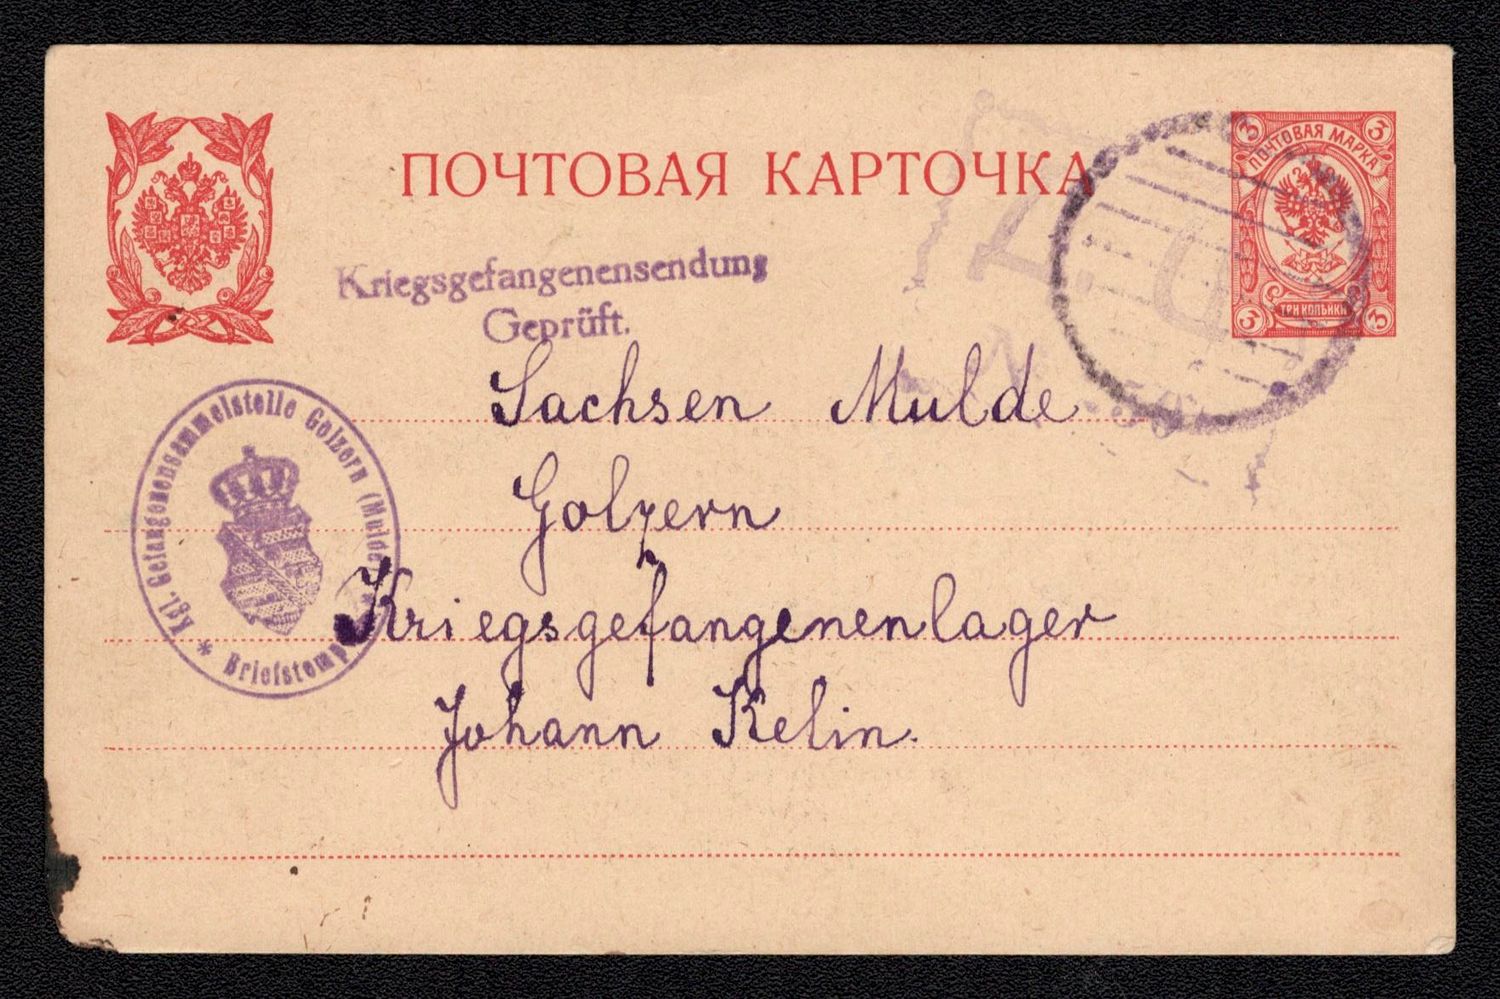 ПОЧТОВАЯ КАРТОЧКА
3 ПОЧТОВАЯ МАРКА 3
3 ТРИ КОПѢЙКИ 3
Kriegsgefangenensendung
Geprüft.
Kgl. Gefangenensammelstelle Golzern (Mulde)
* Briefstempel
Sachsen Mulde
Golzern
Kriegsgefangenenlager
Johann Kelin.